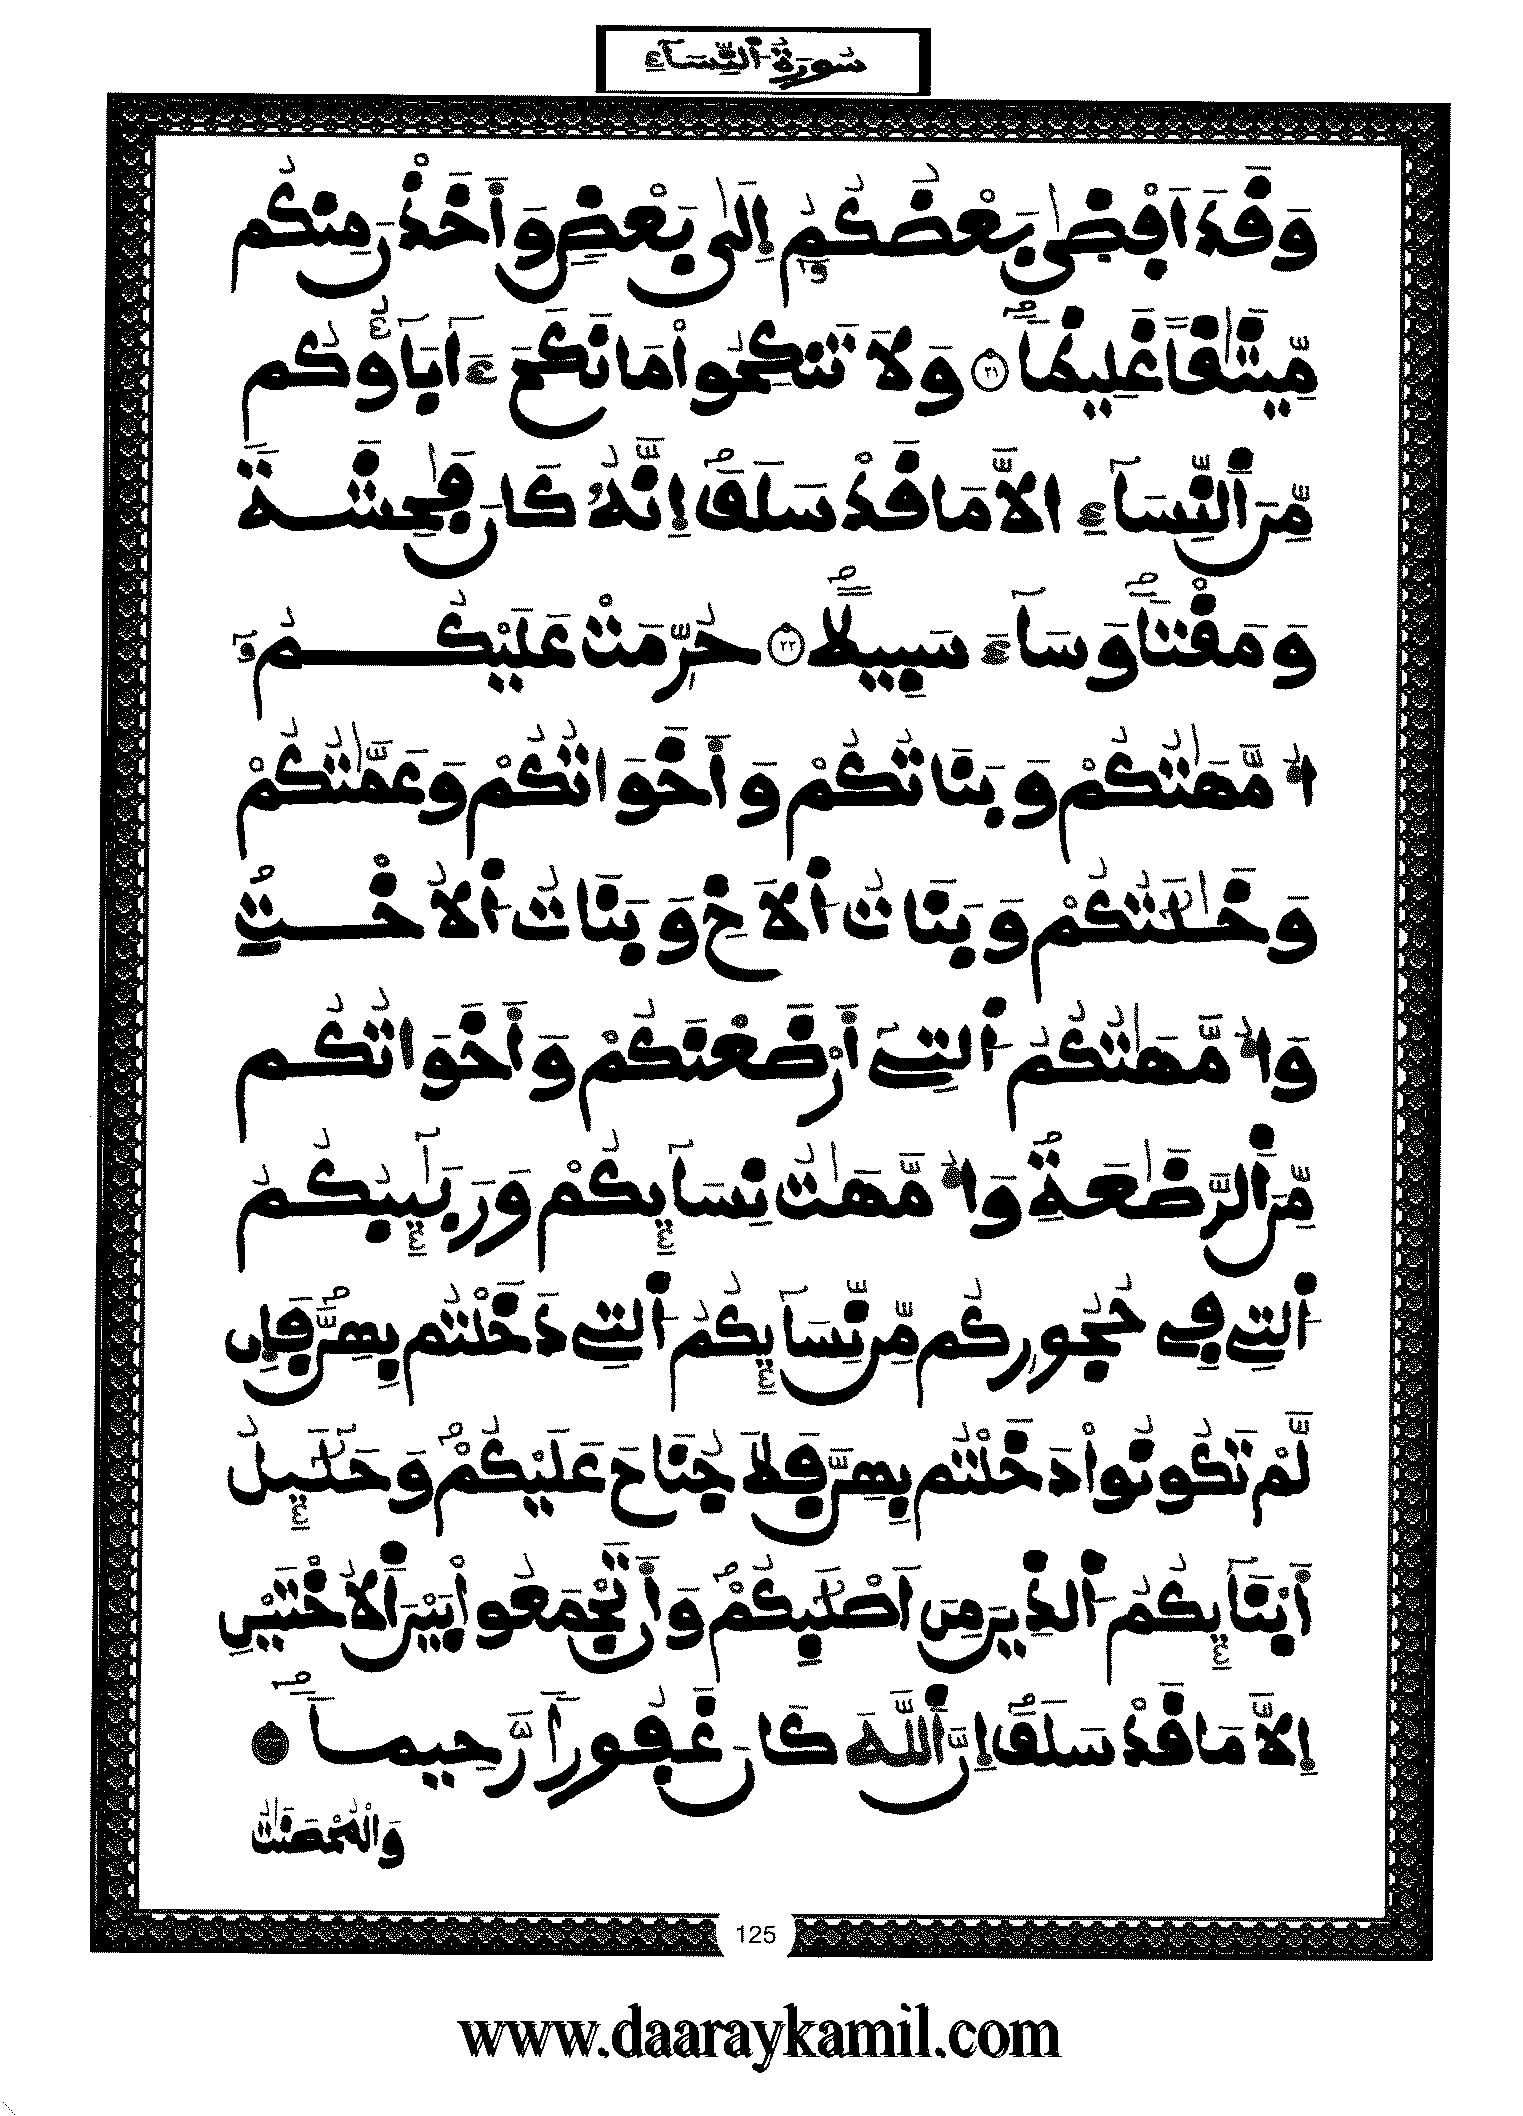 سُورَةُ النِّسَآءِ
وَقَدَ اَفْضىٰ بَعْضُكُمُ إِلىٰ بَعْضٍ وَأَخَذْنَ مِنكُم
مِّيثَٰقاً غَلِيظاً ٢١ وَلاَ تَنكِحُوا مَا نَكَحَ ءَابَآؤُكُم
مِّنَ اَلنِّسَآءِ الاَّ مَا قَدْ سَلَفَ إِنَّهُۥ كَانَ فَٰحِشَةً
وَمَقْتاً وَسَآءَ سَبِيلاً ٢٢ حُرِّمَتْ عَلَيْكُمُ
أُمَّهَٰتُكُمْ وَبَنَاتُكُمْ وَأَخَوَاتُكُمْ وَعَمَّٰتُكُمْ
وَخَٰلَٰتُكُمْ وَبَنَاتُ اَلاَخِ وَبَنَاتُ اَلاُخْتِ
وَأُمَّهَٰتُكُمُ اَلتِےٓ أَرْضَعْنَكُمْ وَأَخَوَاتُكُم
مِّنَ اَلرَّضَٰعَةِ وَأُمَّهَٰتُ نِسَآئِكُمْ وَرَبَٰٓئِبُكُمُ
اَلتِے فِے حُجُورِكُم مِّن نِّسَآئِكُمُ اَلتِے دَخَلْتُم بِهِنَّ فَإِن
لَّمْ تَكُونُوا دَخَلْتُم بِهِنَّ فَلاَ جُنَاحَ عَلَيْكُمْ وَحَلَٰٓئِلُ
أَبْنَآئِكُمُ اَلذِينَ مِنَ اَصْلَٰبِكُمْ وَأَن تَجْمَعُوا بَيْنَ اَلاُخْتَيْنِ
إِلاَّ مَا قَدْ سَلَفَ إِنَّ اَللَّهَ كَانَ غَفُوراً رَّحِيماً
وَالْمُحْصَنَٰتُ
125
www.daaraykamil.com